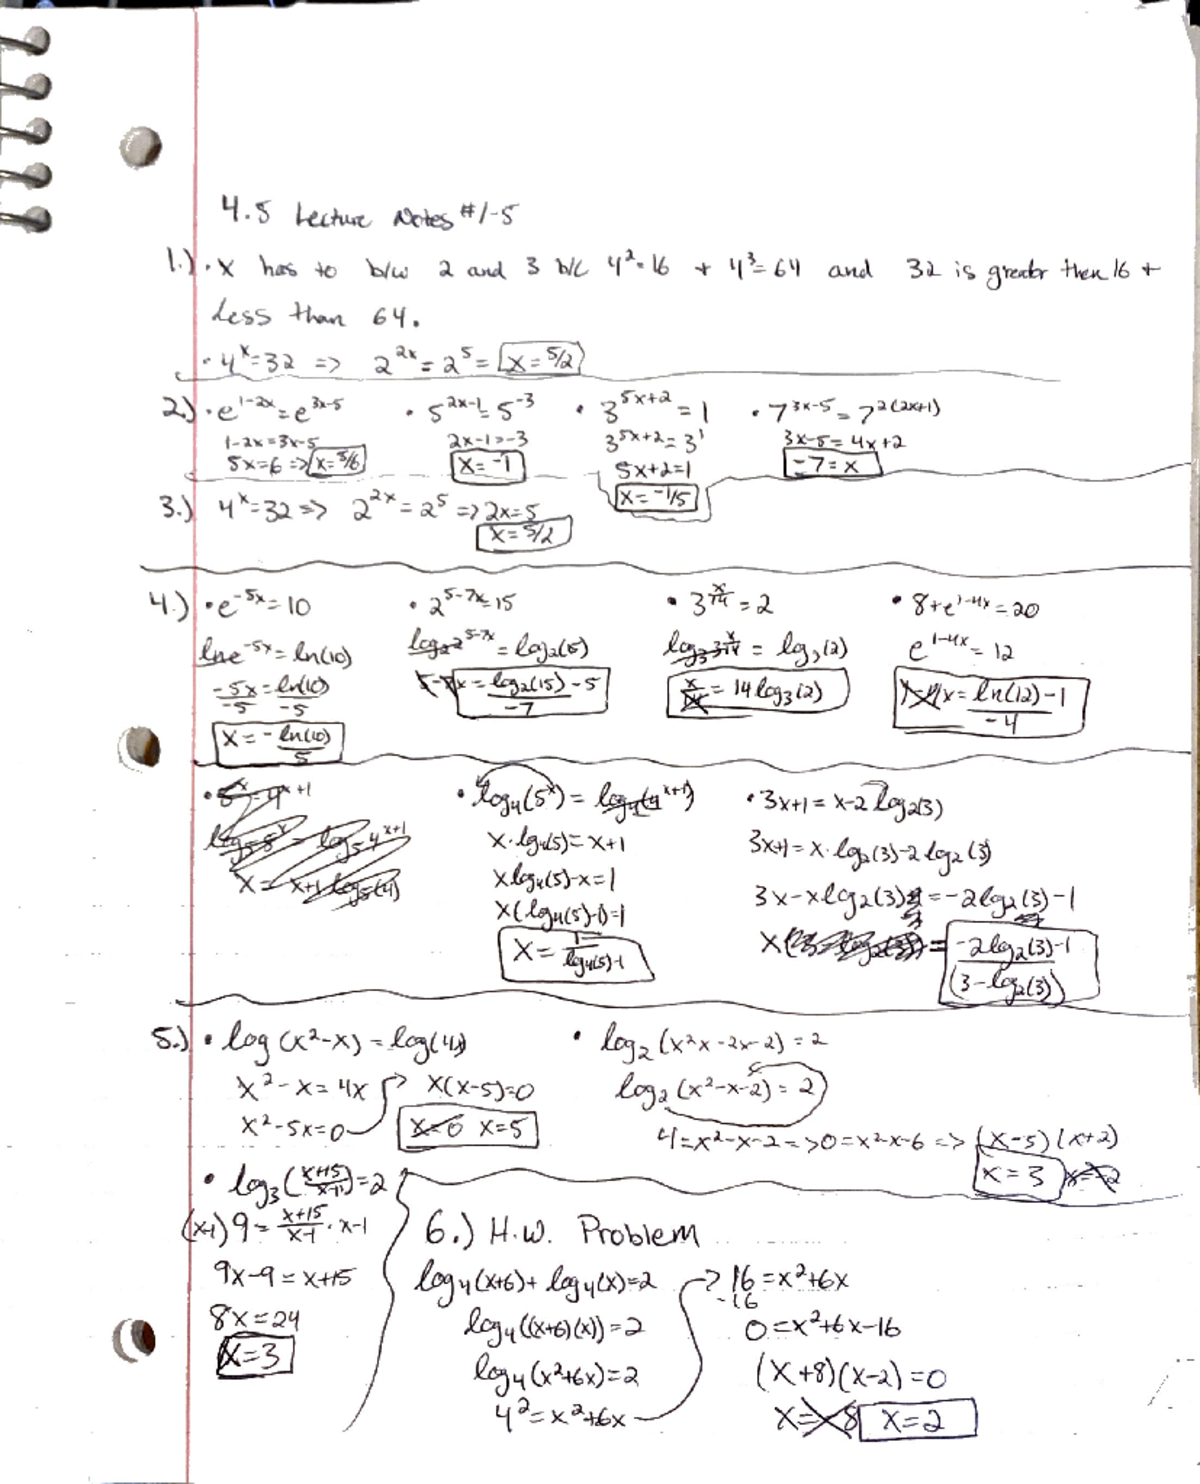 4.5 Lecture Notes #1-5
1.) • x has to b/w 2 and 3 b/c 4²=16 + 4³=64 and 32 is greater then 16 +
Less than 64.
• 4^x=32 => 2^2x = 2^5 = x=5/2
2.) • e^1-2x = e^3x-5
1-2x=3x-5
5x=6 => x=5/6
• 5^2x-1 = 5^-3
2x-1=-3
x=-1
• 3^5x+2 = 1
3^5x+2 = 3^1
5x+2=1
x=-1/5
• 7^3x-5 = 7^2(2x+1)
3x-5=4x+2
-7=x
3.) 4^x=32 => 2^2x = 2^5 => 2x=5
x=5/2
4.) • e^-5x = 10
ln e^-5x = ln(10)
-5x/-5 = ln(10)/-5
x = - ln(10)/5
• 2^5-7x = 15
log₂2^5-7x = log₂(5)
5-7x = log₂(15)-5/-7
• 3^x/14 = 2
log₃3^x/14 = log₃(2)
x/14 = 14log₃(2)
• 8+e^1-4x = 20
e^1-4x = 12
1-4x = ln(12)-1/-4
• 5^x=4^x+1
log₅5^x = log₅4^x+1
x = x+1 log₅(4)
• log₄(5^x) = log₄(4^x+1)
x·log₄(5)=x+1
xlog₄(5)-x=1
x(log₄(5)-1)=1
x = 1/log₄(5)-1
• 3x+1 = x-2 log₂(3)
3x+1 = x·log₂(3)-2log₂(3)
3x-xlog₂(3) = -2log₂(3)-1
x = -2log₂(3)-1/(3-log₂(3))
5.) • log(x²-x) = log(4x)
x²-x=4x
x²-5x=0
x(x-5)=0
x=0 x=5
• log₂(x²x-2x-2)=2
log₂(x²-x-2)=2
4=x²-x-2=>0=x²-x-6=> (x-5)(x+2)
x=3 x=-2
• log₃(x+15/x-1)=2
(x-1)9 = x+15/x-1 · x-1
9x-9=x+15
8x=24
x=3
6.) H.W. Problem
log₄(x+6)+log₄(x)=2
log₄((x+6)(x))=2
log₄(x²+6x)=2
4²=x²+6x
16=x²+6x
-16
0=x²+6x-16
(x+8)(x-2)=0
x=-8 x=2